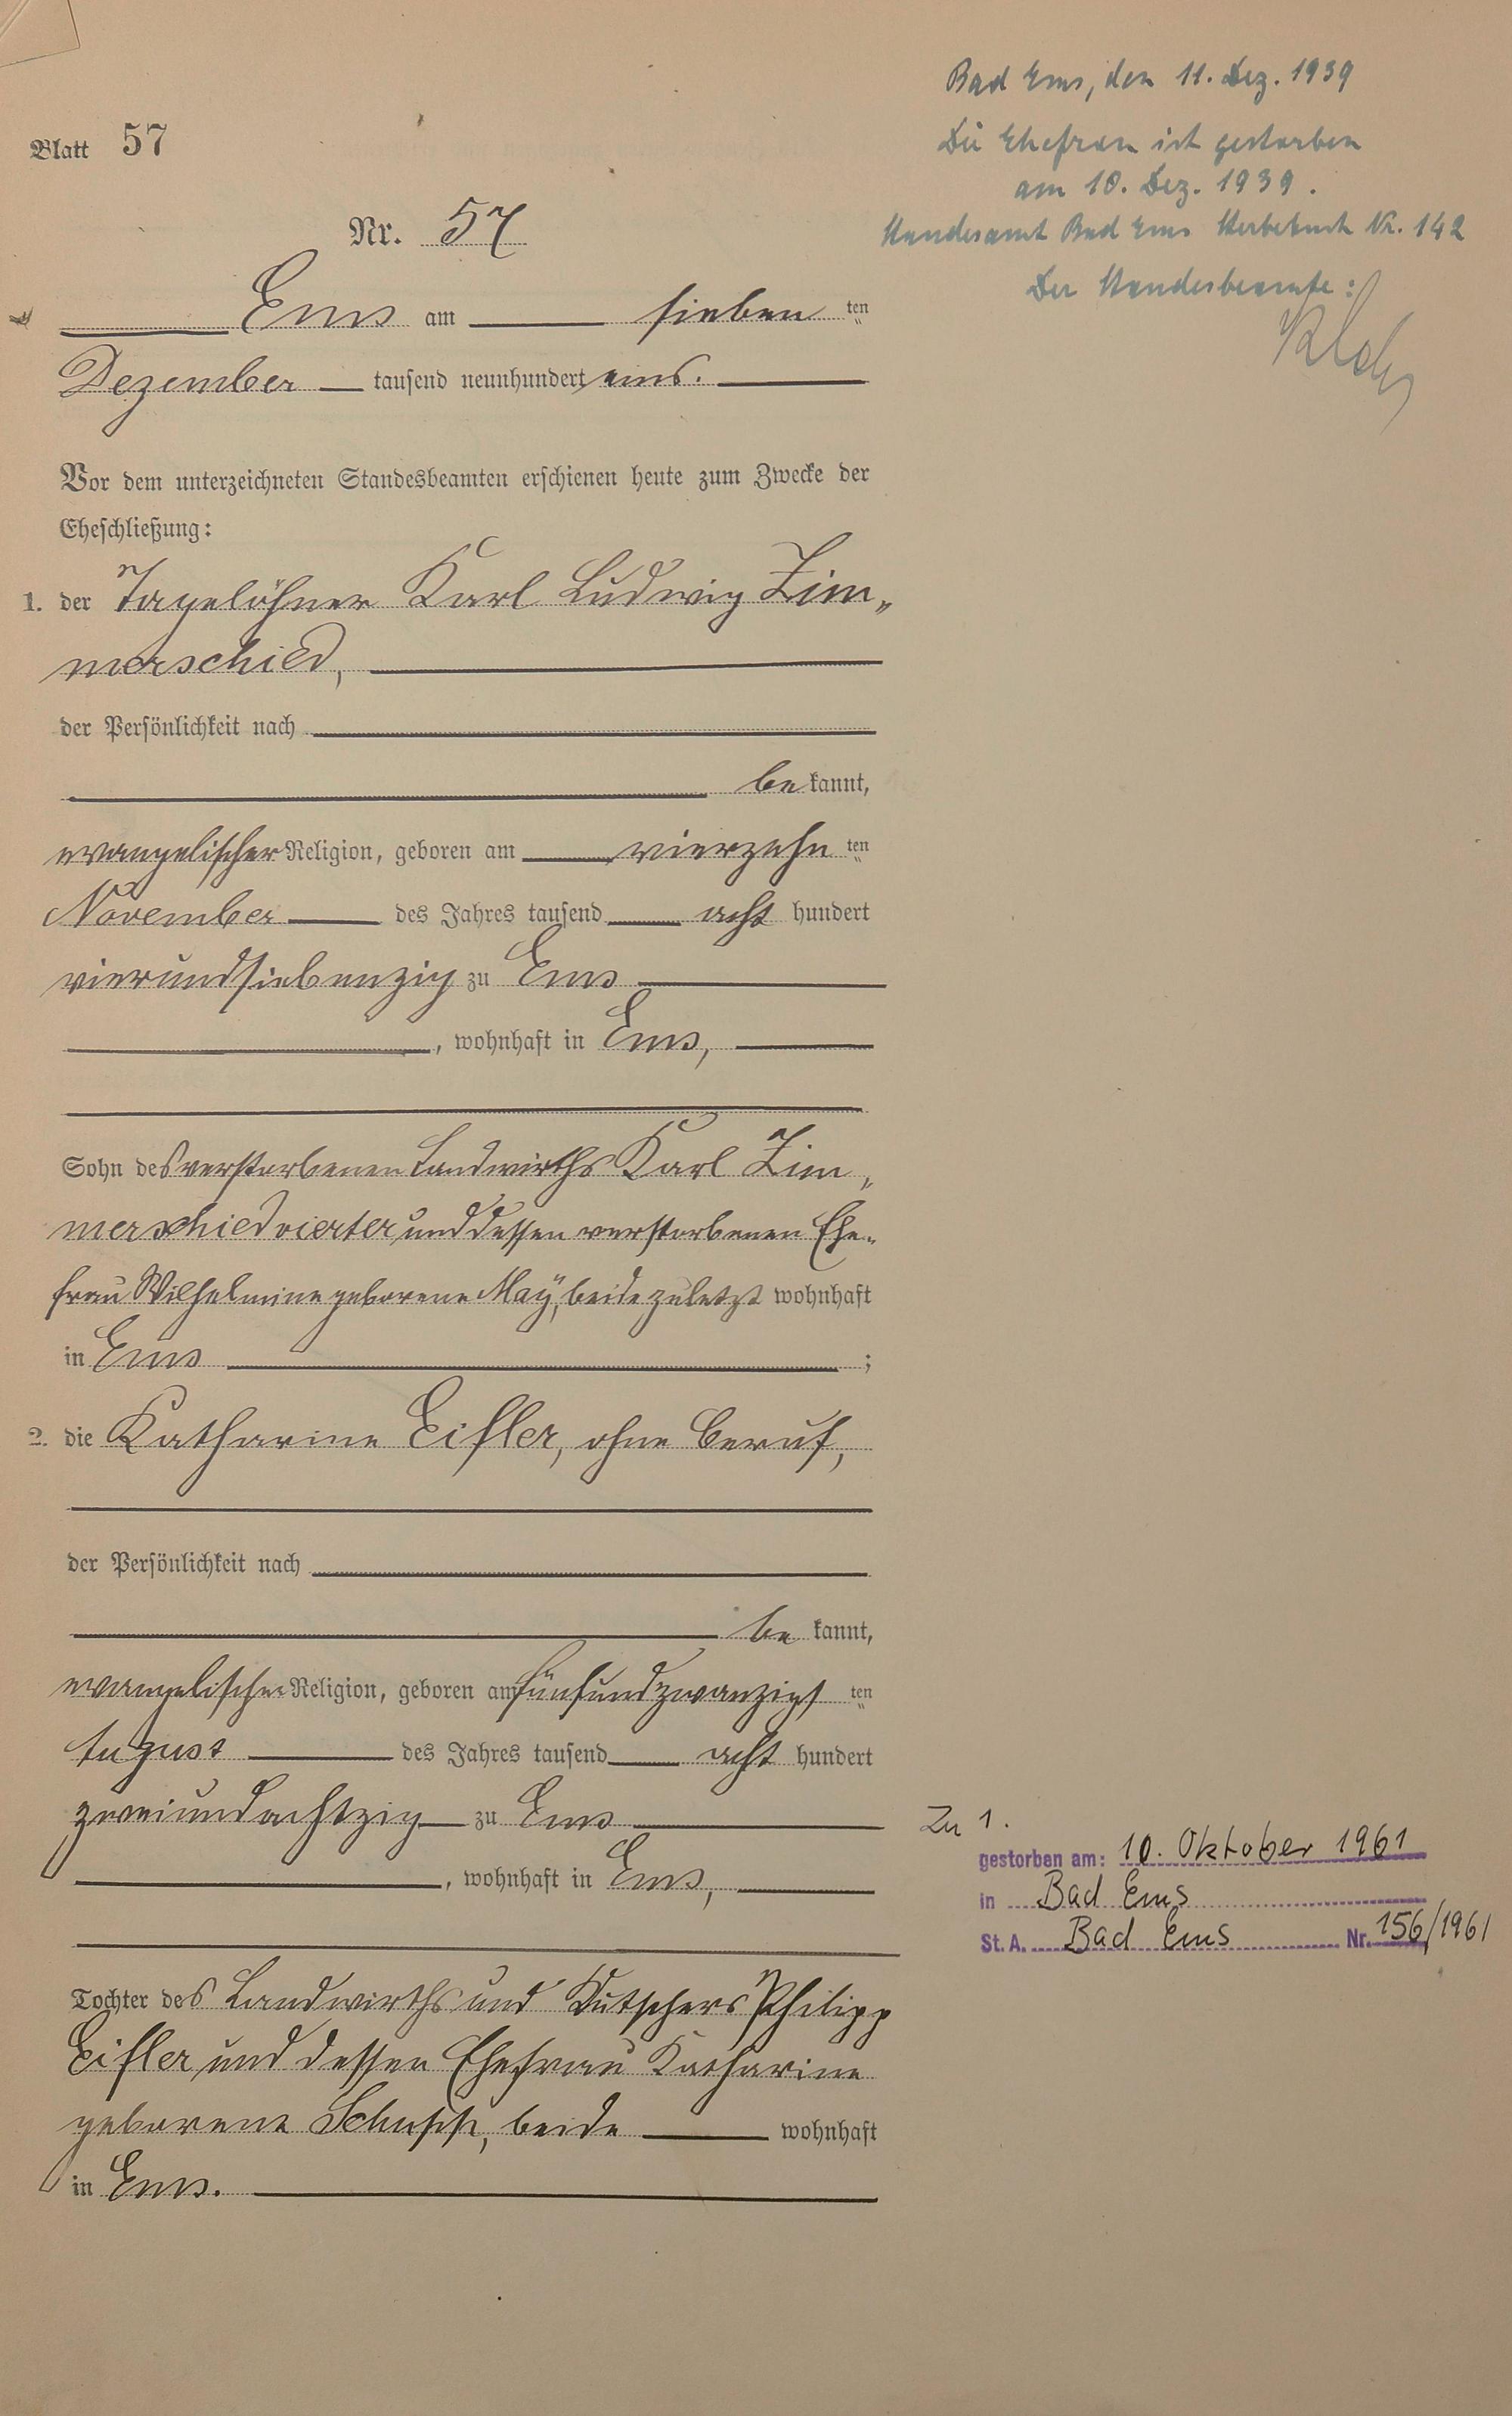 Blatt 57
Nr. 57
Ems am sieben ten
Dezember tausend neunhundert eins.
Vor dem unterzeichneten Standesbeamten erschienen heute zum Zwecke der
Eheschließung:
1. der Tagelöhner Karl Ludwig Zim„
merschied,
der Persönlichkeit nach
be kannt,
evangelischer Religion, geboren am vierzehn ten
November des Jahres tausend acht hundert
vierundsiebenzig zu Ems
, wohnhaft in Ems,
Sohn des verstorbenen Landwirths Karl Zim„
merschied vierter und dessen verstorbenen Ehe„
frau Wilhelmine geborene May, beide zuletzt wohnhaft
in Ems ;
2. die Katharine Eifler, ohne Beruf,
der Persönlichkeit nach
be kannt,
evangelischer Religion, geboren am fünfundzwanzigs ten
August des Jahres tausend acht hundert
zweiundachtzig zu Ems
, wohnhaft in Ems,
Tochter des Landwirths und Kutschers Philipp
Eifler und dessen Ehefrau Katharine
geborene Schupp, beide wohnhaft
in Ems.
Bad Ems, den 11. Dez. 1939
Die Ehefrau ist gestorben
am 10. Dez. 1939.
Standesamt Bad Ems Sterbebuch Nr. 142
Der Standesbeamte:
Zu 1.
gestorben am: 10. Oktober 1961
in Bad Ems
St. A. Bad Ems Nr. 156/1961